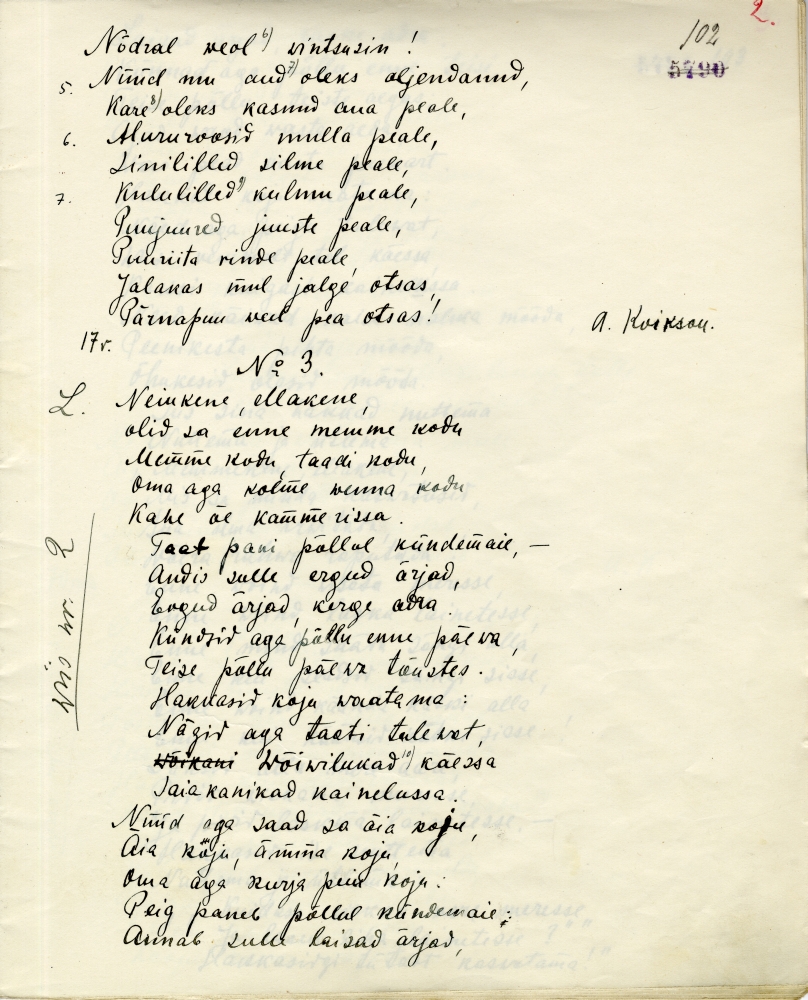 2.
102
5790
Nõdral weol ⁶) wintsusin!
5. Nüüd mu aud ⁷) oleks aljendanud,
Kare ⁸) oleks kasnud aua peale,
6. Mururoosid mulla peale,
Sinililled silme peale,
7. Kululilled ⁹) kulmu peale,
Puujuured juuste peale,
Puuriita rinde peale,
Jalakas mul jalge otsas,
Pärnapuu weel pea otsas!
A. Kvikson.
17v.
No 3.
L. Neiukene, ellakene,
olid sa enne memme kodu
Memme kodu, taadi kodu,
Oma aga kolme wenna kodu
Kahe õe kammerissa.
Taat pani põllul kündemaie, —
Andis sulle ergud ärjad,
Ergud ärjad, kerge adra.
Kündsid aga põllu enne päewa,
Teise põllu päewa tõustes.
Hakkasid koju waatama:
Nägid aga taati tulewat,
Wõikani Wõiwilukad ¹⁰) käessa
Saiakanikad kainelussa.
Nüüd aga saad sa äia koju,
Äia koju, ämma koju,
Oma aga kurja peiu koju:
Peig paneb põllul kündemaie;
Annab sulle laisad ärjad,
Wiis nr. 2